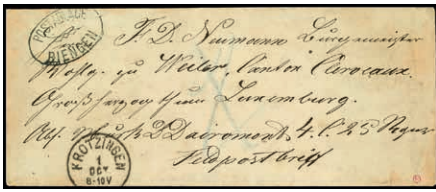 POSTABLAGE
BIENGEN
F. D. Neumann Burgemeister
Wohlg. zu Weiler, Canton Clervaux.
Großherzogthum Luxemburg.
4. C. 25
Feldpostbrief
KROTZINGEN
1
OCT
8-10V